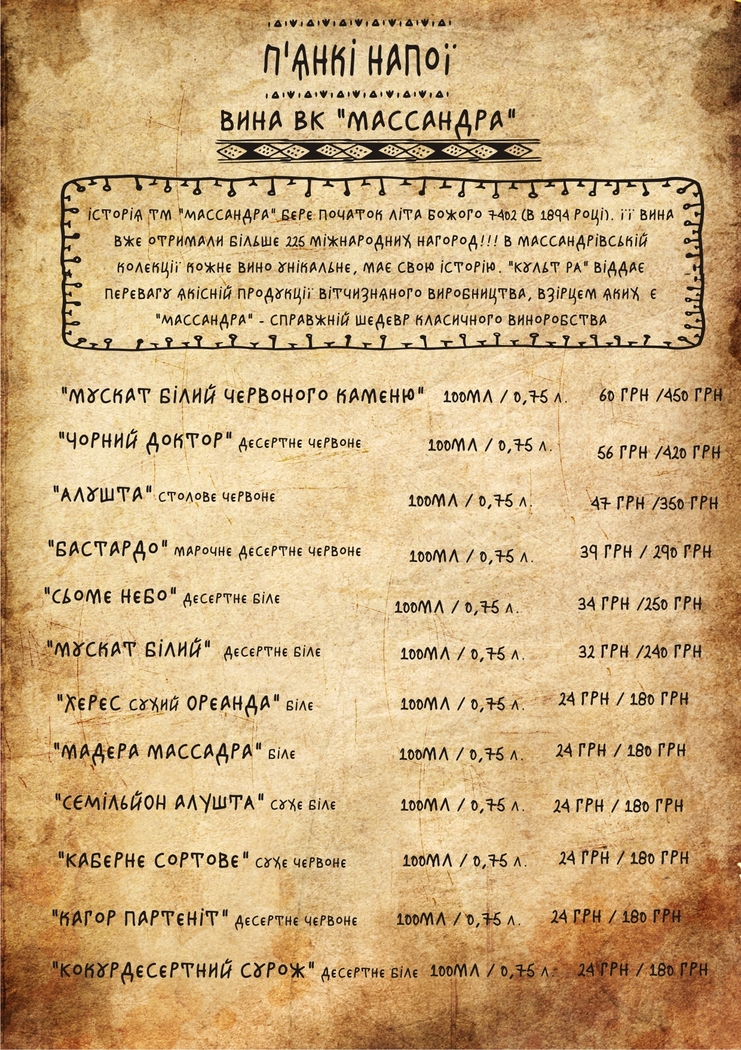 П'ЯНКІ НАПОЇ
ВИНА ВК "МАССАНДРА"
ІСТОРІЯ ТМ "МАССАНДРА" БЕРЕ ПОЧАТОК ЛІТА БОЖОГО 7402 (В 1894 РОЦІ). ЇЇ ВИНА
ВЖЕ ОТРИМАЛИ БІЛЬШЕ 225 МІЖНАРОДНИХ НАГОРОД!!! В МАССАНДРІВСЬКІЙ
КОЛЕКЦІЇ КОЖНЕ ВИНО УНІКАЛЬНЕ, МАЄ СВОЮ ІСТОРІЮ. "КУЛЬТ РА" ВІДДАЄ
ПЕРЕВАГУ ЯКІСНІЙ ПРОДУКЦІЇ ВІТЧИЗНЯНОГО ВИРОБНИЦТВА, ВЗІРЦЕМ ЯКИХ Є
"МАССАНДРА" - СПРАВЖНІЙ ШЕДЕВР КЛАСИЧНОГО ВИНОРОБСТВА
"МУСКАТ БІЛИЙ ЧЕРВОНОГО КАМЕНЮ" 100МЛ / 0,75 Л. 60 ГРН /450 ГРН
"ЧОРНИЙ ДОКТОР" ДЕСЕРТНЕ ЧЕРВОНЕ 100МЛ / 0,75 Л. 56 ГРН /420 ГРН
"АЛУШТА" СТОЛОВЕ ЧЕРВОНЕ 100МЛ / 0,75 Л. 47 ГРН /350 ГРН
"БАСТАРДО" МАРОЧНЕ ДЕСЕРТНЕ ЧЕРВОНЕ 100МЛ / 0,75 Л. 39 ГРН / 290 ГРН
"СЬОМЕ НЕБО" ДЕСЕРТНЕ БІЛЕ 100МЛ / 0,75 Л. 34 ГРН /250 ГРН
"МУСКАТ БІЛИЙ" ДЕСЕРТНЕ БІЛЕ 100МЛ / 0,75 Л. 32 ГРН /240 ГРН
"ХЕРЕС СУХИЙ ОРЕАНДА" БІЛЕ 100МЛ / 0,75 Л. 24 ГРН / 180 ГРН
"МАДЕРА МАССАДРА" БІЛЕ 100МЛ / 0,75 Л. 24 ГРН / 180 ГРН
"СЕМІЛЬЙОН АЛУШТА" СУХЕ БІЛЕ 100МЛ / 0,75 Л. 24 ГРН / 180 ГРН
"КАБЕРНЕ СОРТОВЕ" СУХЕ ЧЕРВОНЕ 100МЛ / 0,75 Л. 24 ГРН / 180 ГРН
"КАГОР ПАРТЕНІТ" ДЕСЕРТНЕ ЧЕРВОНЕ 100МЛ / 0,75 Л. 24 ГРН / 180 ГРН
"КОКУРДЕСЕРТНИЙ СУРОЖ" ДЕСЕРТНЕ БІЛЕ 100МЛ / 0,75 Л. 24 ГРН / 180 ГРН